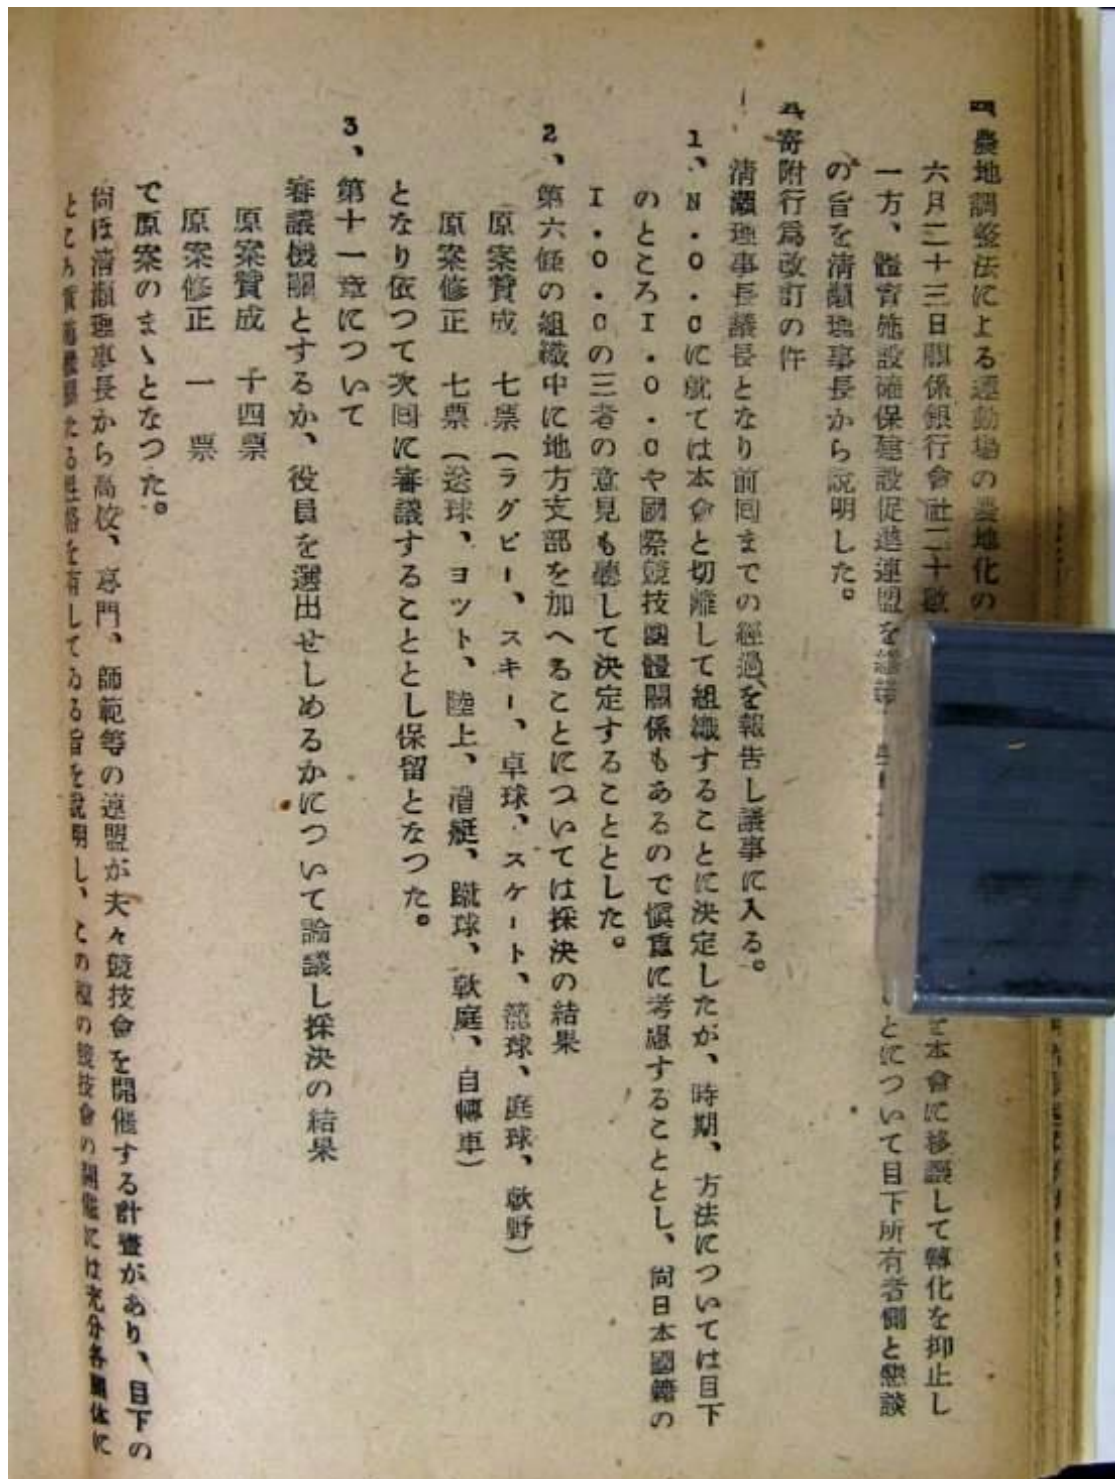 四、農地調整法による運動場の農地化の
六月二十三日關係銀行會社二十數
を本會に移讓して轉化を抑止し
一方、體育施設確保建設促進連盟を
とについて目下所有者側と懇談
の旨を清瀬理事長から説明した。
五、寄附行爲改訂の件
清瀬理事長議長となり前回までの經過を報告し議事に入る。
1、N・O・Cに就ては本會と切離して組織することに決定したが、時期、方法については目下
のところI・O・Cや國際競技團體關係もあるので愼重に考慮することとし、尚日本國籍の
I・O・Cの三者の意見も聽して決定することとした。
2、第六條の組織中に地方支部を加へることについては採決の結果
原案賛成　七票（ラグビー、スキー、卓球、スケート、籠球、庭球、軟野）
原案修正　七票（送球、ヨット、陸上、漕艇、蹴球、軟庭、自轉車）
となり依つて次回に審議することとし保留となつた。
3、第十一章について
審議機關とするか、役員を選出せしめるかについて論議し採決の結果
原案賛成　十四票
原案修正　一　票
で原案のまゝとなつた。
尚ほ清瀬理事長から高校、專門、師範等の連盟が夫々競技會を開催する計畫があり、目下の
たる性格を有してゐる旨を説明し、この種の競技會の開催には充分各團体に